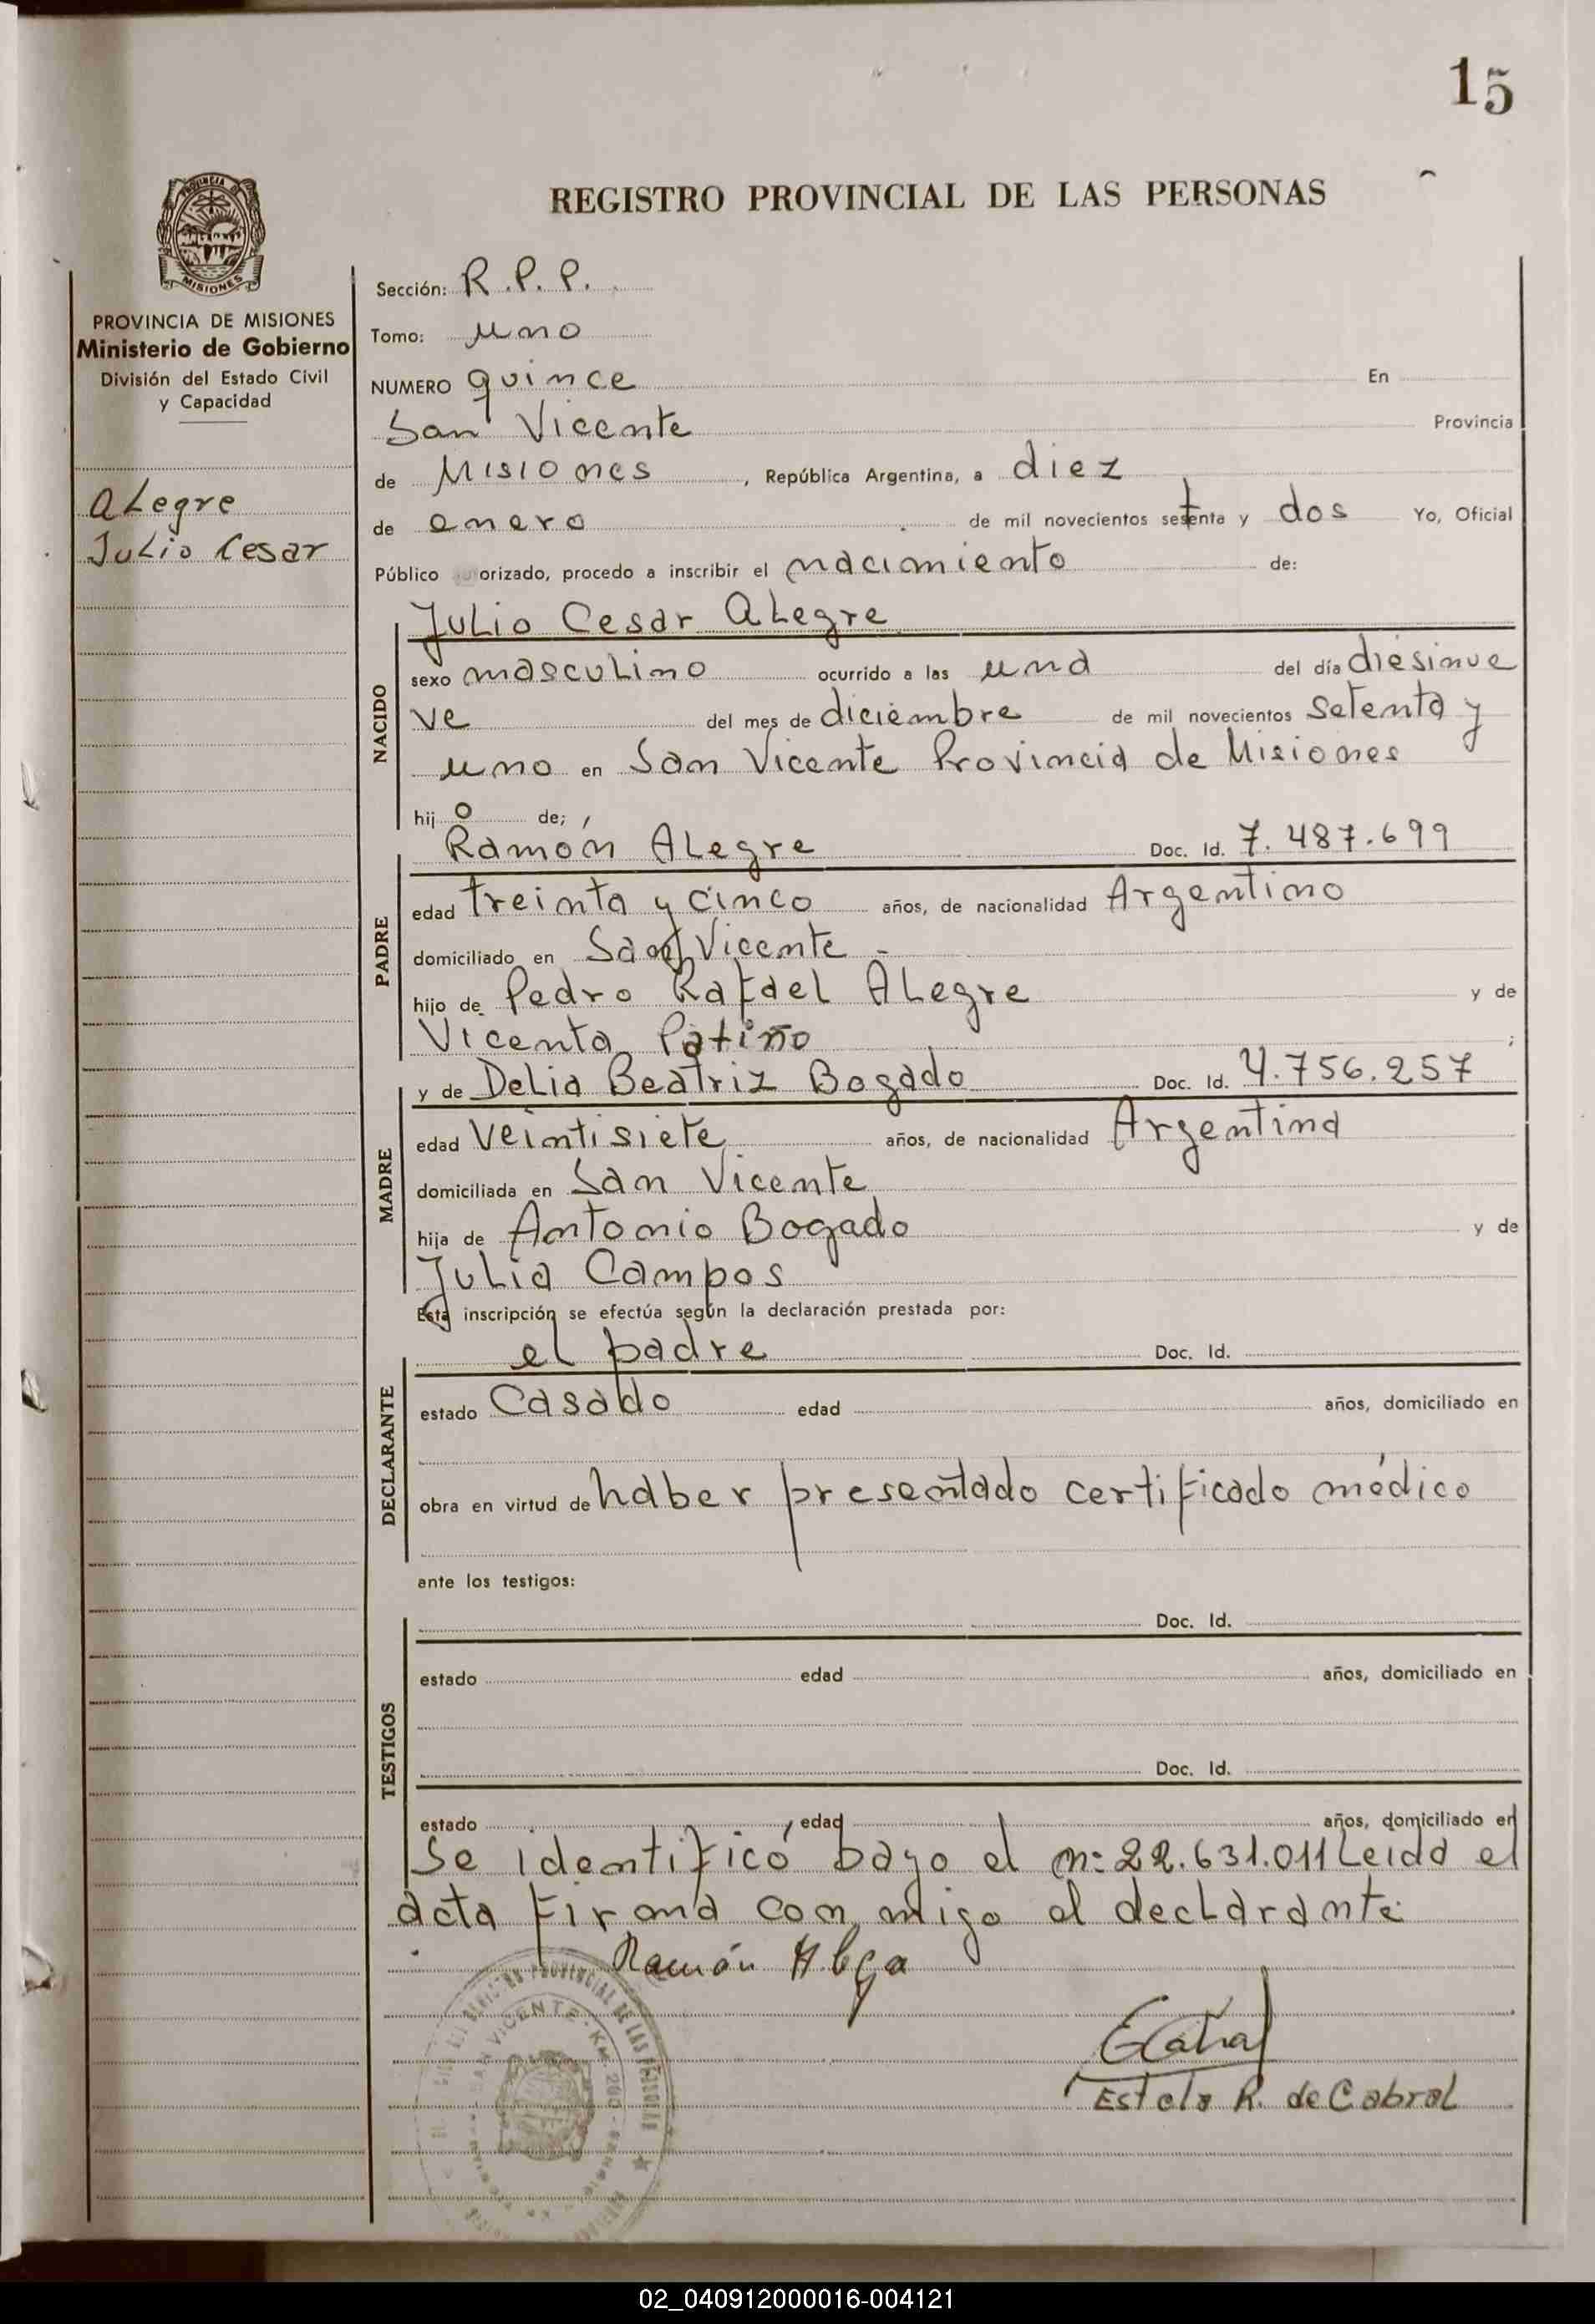 15
REGISTRO PROVINCIAL DE LAS PERSONAS
PROVINCIA DE
MISIONES
PROVINCIA DE MISIONES
Ministerio de Gobierno
División del Estado Civil
y Capacidad
ALegre
Julio Cesar
Sección: R.P.P.
Tomo: uno
NUMERO quince En
San Vicente Provincia
de Misiones, República Argentina, a diez
de enero de mil novecientos setenta y dos Yo, Oficial
Público orizado, procedo a inscribir el nacimiento de:
Julio Cesar ALegre
NACIDO
sexo masculino ocurrido a las una del día diesinue
ve del mes de diciembre de mil novecientos setenta y
uno en San Vicente Provincia de Misiones
hijo de;
PADRE
Ramón ALegre Doc. Id. 7.487.699
edad treinta y cinco años, de nacionalidad Argentino
domiciliado en San Vicente -
hijo de Pedro Rafael ALegre y de
Vicenta Patiño ;
MADRE
y de Delia Beatriz Bogado Doc. Id. 4.756.257
edad veintisiete años, de nacionalidad Argentina
domiciliada en San Vicente
hija de Antonio Bogado y de
Julia Campos
Esta inscripción se efectúa según la declaración prestada por:
DECLARANTE
el padre Doc. Id.
estado Casado edad años, domiciliado en
obra en virtud de haber presentado certificado médico
ante los testigos:
TESTIGOS
Doc. Id.
estado edad años, domiciliado en
Doc. Id.
estado edad años, domiciliado en
Se identificó bayo el n: 22.631.011 Leida el
acta firma con migo el declarante.
Ramón
REGISTRO PROVINCIAL DE LAS PERSONAS
SAN VICENTE - KM. 200 -
ECabral
Estela R. de Cabral
02_040912000016-004121